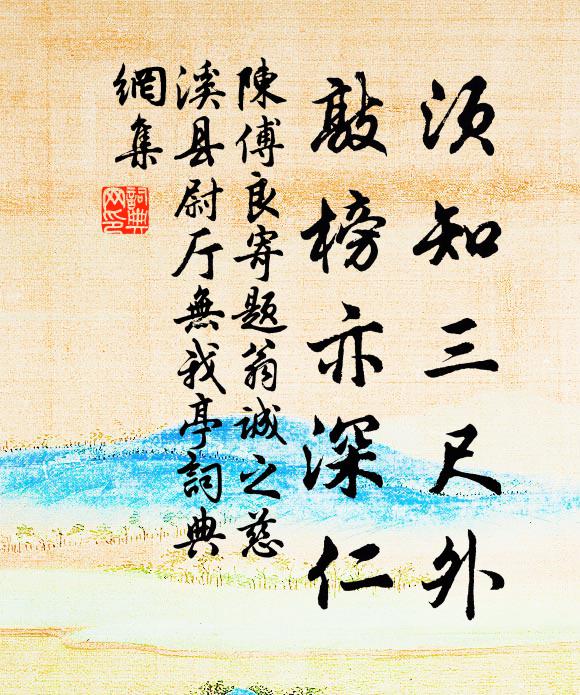 须知三尺外
敲榜亦深仁
陳傅良寄题翁诚之慈
溪县尉厅無我亭詞典
網集
詞典
网印